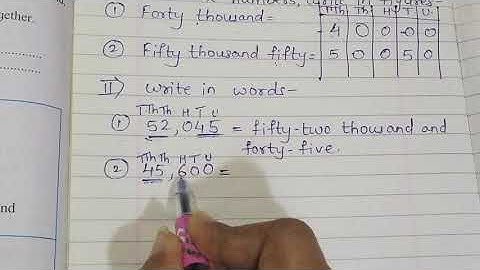 numbers, write in figures-
TTh Th H T U
① Forty thousand = 4 0 0 0 0
② Fifty thousand fifty = 5 0 0 5 0
II) Write in words-
TTh Th H T U
① 52,045 = fifty-two thouand and
forty-five.
TTh Th H T U
② 45,600 =
ogether.
nd